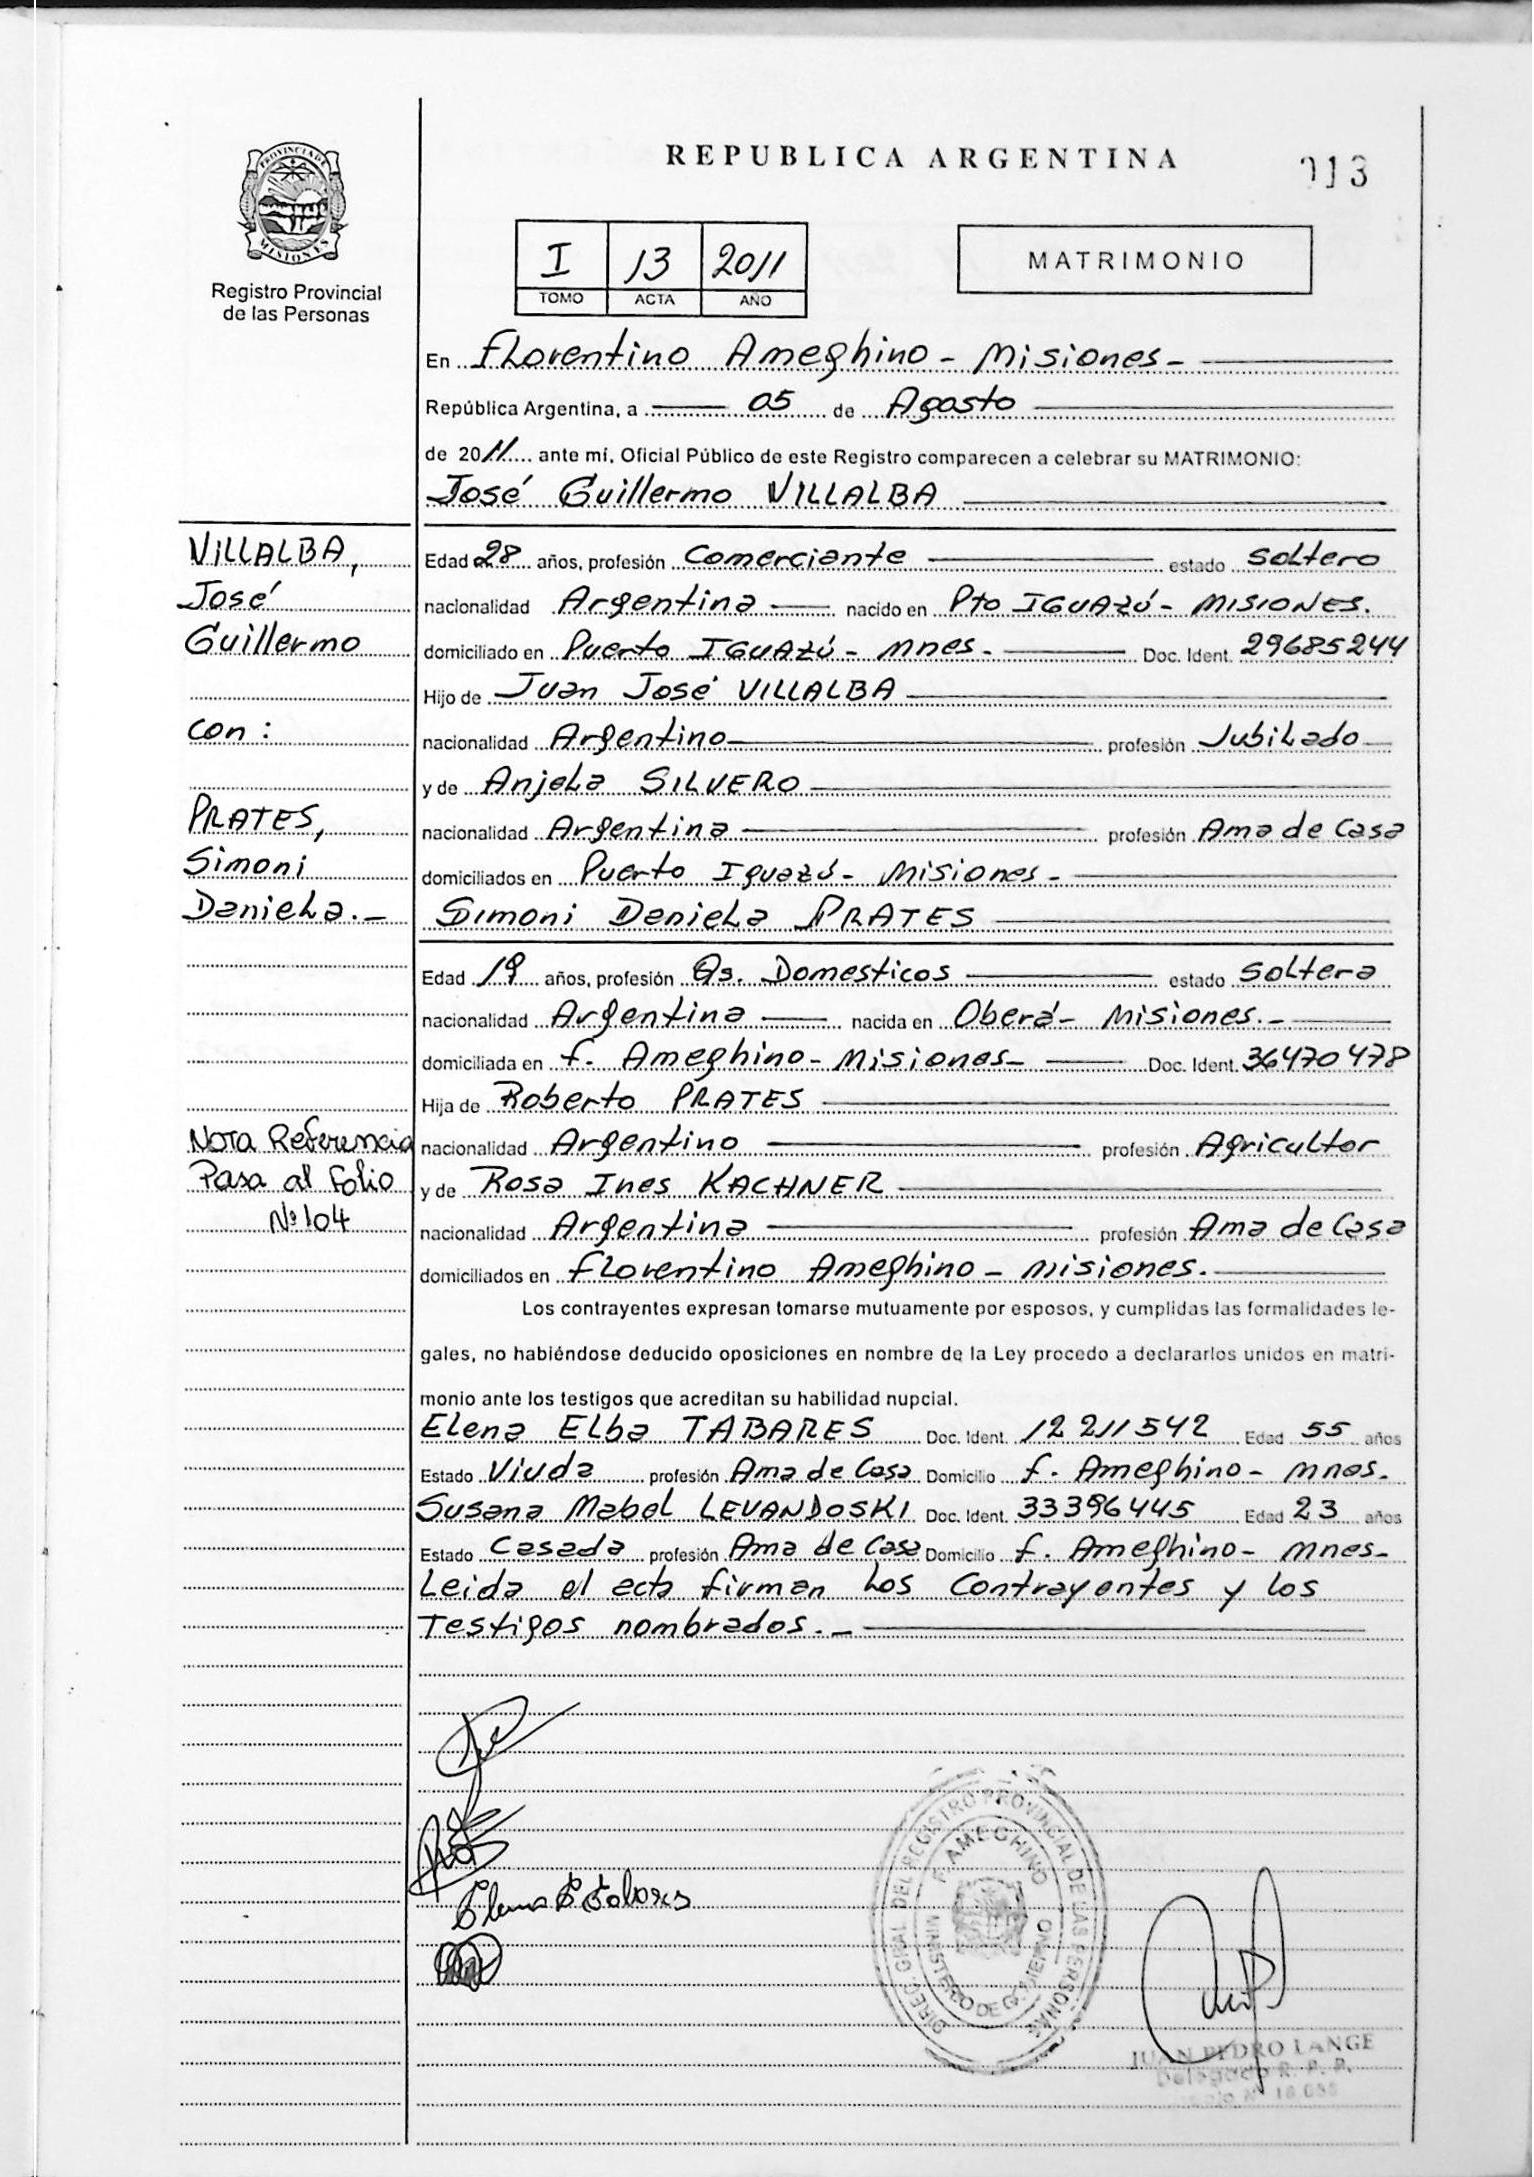 REPUBLICA ARGENTINA
013
PROVINCIA DE
MISIONES
Registro Provincial
de las Personas
I 13 2011
TOMO ACTA AÑO
MATRIMONIO
En Florentino Ameghino - Misiones -
República Argentina, a 05 de Agosto
de 2011 ante mí, Oficial Público de este Registro comparecen a celebrar su MATRIMONIO:
José Guillermo VILLALBA
VILLALBA,
José
Guillermo
con :
PRATES,
Simoni
Daniela.-
Edad 28 años, profesión Comerciante estado Soltero
nacionalidad Argentina nacido en Pto IGUAZÚ - MISIONES.
domiciliado en Puerto IGUAZÚ - Mnes - Doc. Ident. 29685244
Hijo de Juan José VILLALBA
nacionalidad Argentino profesión Jubilado
y de Anjela SILVERO
nacionalidad Argentina profesión Ama de Casa
domiciliados en Puerto Iguazú - Misiones -
Simoni Daniela PRATES
Edad 19 años, profesión Qs. Domesticos estado Soltera
nacionalidad Argentina nacida en Oberá - Misiones.-
domiciliada en F. Ameghino - Misiones - Doc. Ident. 36470478
Hija de Roberto PRATES
Nota Referencia
Pasa al Folio
Nº 104
nacionalidad Argentino profesión Agricultor
y de Rosa Ines KACHNER
nacionalidad Argentina profesión Ama de Casa
domiciliados en Florentino Ameghino - Misiones.
Los contrayentes expresan tomarse mutuamente por esposos, y cumplidas las formalidades le-
gales, no habiéndose deducido oposiciones en nombre de la Ley procedo a declararlos unidos en matri-
monio ante los testigos que acreditan su habilidad nupcial.
Elena Elba TABARES Doc. Ident. 12 211 542 Edad 55 años
Estado Viuda profesión Ama de Casa Domicilio F. Ameghino - Mnes.
Susana Mabel LEVANDOSKI Doc. Ident. 33396445 Edad 23 años
Estado Casada profesión Ama de Casa Domicilio F. Ameghino - Mnes-
Leida el acta firman los Contrayentes y los
Testigos nombrados.-
Elena E Tabares
DIREC. GRAL. DEL REGISTRO PROVINCIAL DE LAS PERSONAS
F. AMEGHINO
MINISTERIO DE GOBIERNO
JUAN PEDRO LANGE
Delegado R. P. P.